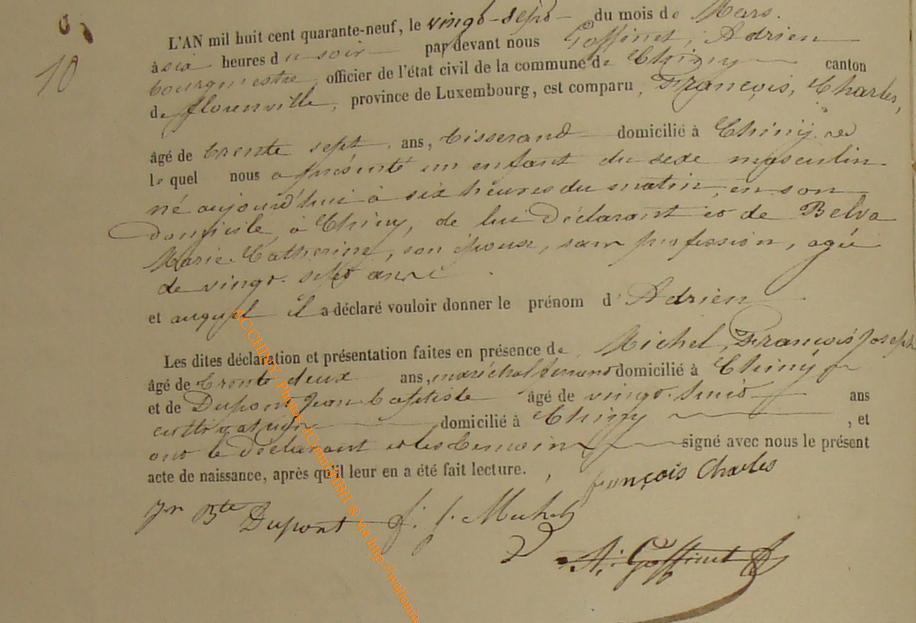 10
L'AN mil huit cent quarante-neuf, le vingt-sept du mois de Mars.
à six heures du soir par devant nous Goffinet, Adrien
bourgmestre officier de l'état civil de la commune de Chiny canton
de florenville, province de Luxembourg, est comparu, François, Charles,
âgé de trente sept ans, tisserand domicilié à Chiny
lequel nous a présenté un enfant du sexe masculin
né aujourd'hui à six heures du matin, en son
domicile à Chiny, de lui Déclarant et de Belva
Marie Catherine, son épouse, sans profession, agée
de vingt-sept ans
et auquel il a déclaré vouloir donner le prénom d'Adrien
Les dites déclaration et présentation faites en présence de Michel, François Joseph
âgé de trente deux ans, maréchal ferrant domicilié à Chiny
et de Dupont Jean Baptiste âgé de vingt-huit ans
cultivateur domicilié à Chiny, et
ont le déclarant et les témoins signé avec nous le présent
acte de naissance, après qu'il leur en a été fait lecture.
françois Charles
Jn Bte Dupont f. j. Michel
A. Goffinet